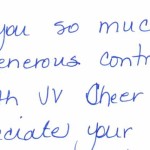 you so much
enerous contr
th JV Cheer
eciate your